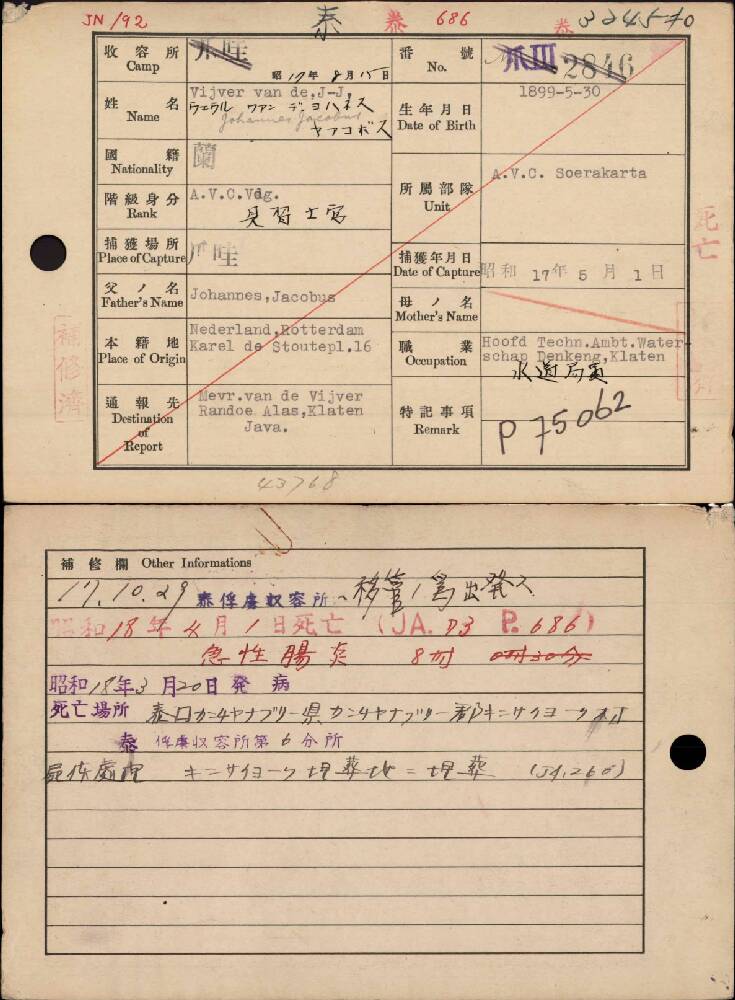 JN 192 泰 泰 686 泰
收容所 Camp 爪哇
昭 17年 8月 15日
番號 No. 爪III 2846
姓名 Name Vijver van de, J-J,
Johannes Jacobus
ヤアコボス
生年月日 Date of Birth 1899-5-30
國籍 Nationality 蘭
階級身分 Rank A.V.C.Vdg.
見習士官
所屬部隊 Unit A.V.C. Soerakarta
捕獲場所 Place of Capture 爪哇
捕獲年月日 Date of Capture 昭和 17年 5月 1日
父ノ名 Father's Name Johannes, Jacobus
母ノ名 Mother's Name
本籍地 Place of Origin Nederland, Rotterdam
Karel de Stoutepl.16
職業 Occupation Hoofd Techn.Ambt.Water-
schap Denkeng, Klaten
通報先 Destination of Report Mevr.van de Vijver
Randoe Alas, Klaten
Java.
特記事項 Remark P 75062
死亡
補修濟
43768
補修欄 Other Informations
17.10.29 泰俘虜収容所へ移管ノ為出発ス
昭和18年4月1日死亡 (JA. P3 P. 686)
急性腸炎 8時 0時30分
昭和18年3月20日発病
死亡場所 泰国カンチヤナブリー県カンチヤナブリー郡キンサイヨーク村
泰俘虜収容所第6分所
屍体處理 キンサイヨーク埋葬地ニ埋葬